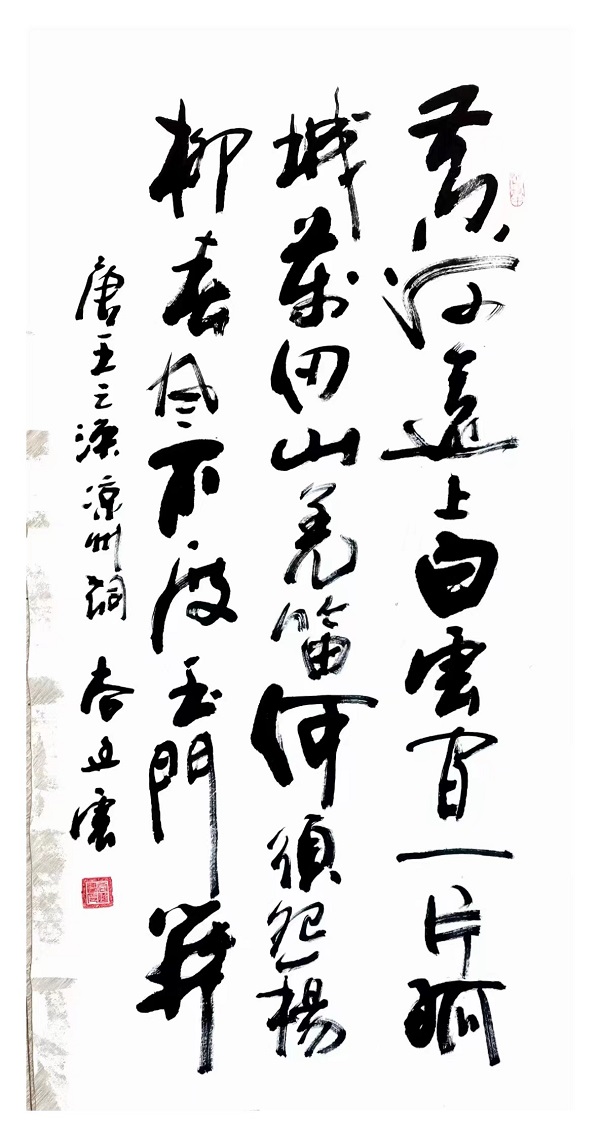 黄河遠上白雲間一片孤
城萬仞山羌笛何須怨楊
柳春風不度玉門關
唐王之渙涼州詞 雲